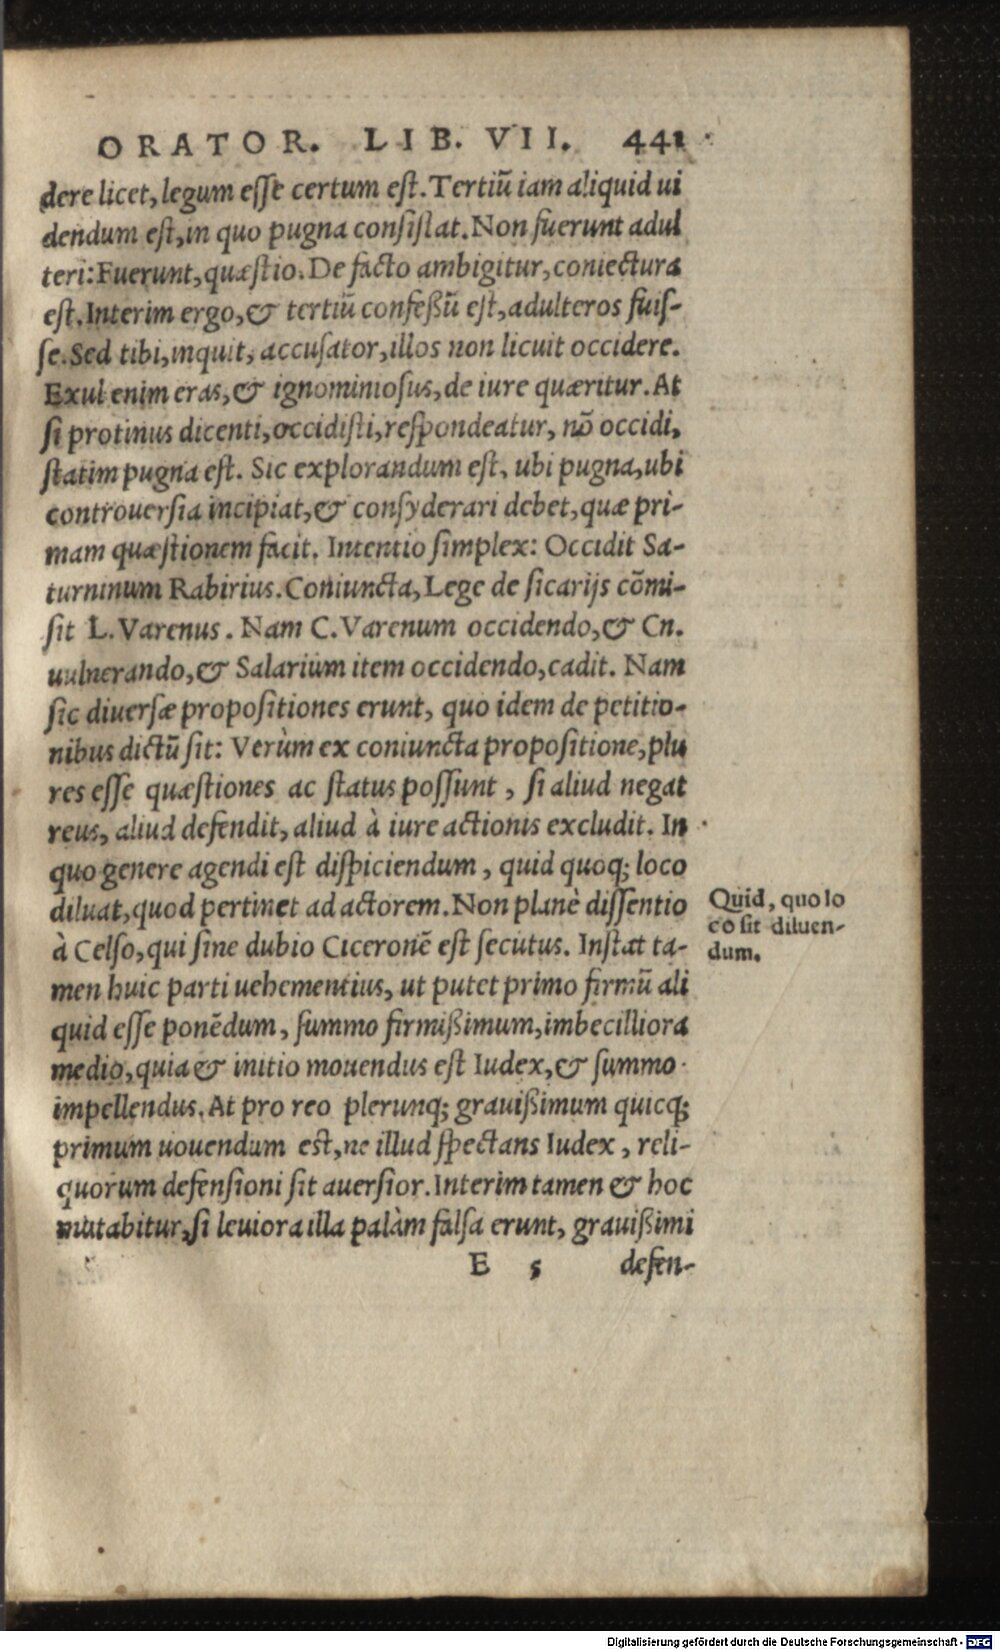 ORATOR. LIB. VII. 441
dere licet, legum esse certum est. Tertiũ iam aliquid ui
dendum est, in quo pugna consistat. Non fuerunt adul
teri: Fuerunt, quæstio. De facto ambigitur, coniectura
est. Interim ergo, & tertiũ confeßũ est, adulteros fuis-
se. Sed tibi, inquit, accusator, illos non licuit occidere.
Exul enim eras, & ignominiosus, de iure quæritur. At
si protinus dicenti, occidisti, respondeatur, nõ occidi,
statim pugna est. Sic explorandum est, ubi pugna, ubi
controuersia incipiat, & consyderari debet, quæ pri-
mam quæstionem facit. Intentio simplex: Occidit Sa-
turninum Rabirius. Coniuncta, Lege de sicarijs cõmi-
sit L. Varenus. Nam C. Varenum occidendo, & Cn.
uulnerando, & Salarium item occidendo, cadit. Nam
sic diuersæ propositiones erunt, quo idem de petitio-
nibus dictũ sit: Verùm ex coniuncta propositione, plu
res esse quæstiones ac status possunt, si aliud negat
reus, aliud defendit, aliud à iure actionis excludit. In
quo genere agendi est dispiciendum, quid quoq; loco
diluat, quod pertinet ad actorem. Non planè dissentio
à Celso, qui sine dubio Ciceronẽ est secutus. Instat ta-
men huic parti uehementius, ut putet primo firmũ ali
quid esse ponẽdum, summo firmißimum, imbecilliora
medio, quia & initio mouendus est Iudex, & summo
impellendus. At pro reo plerunq; grauißimum quicq;
primum uouendum est, ne illud spectans Iudex, reli-
quorum defensioni sit auersior. Interim tamen & hoc
mutabitur, si leuiora illa palàm falsa erunt, grauißimi
E 5 defen-
Quid, quo lo
co sit diluen-
dum.
Digitalisierung gefördert durch die Deutsche Forschungsgemeinschaft - DFG